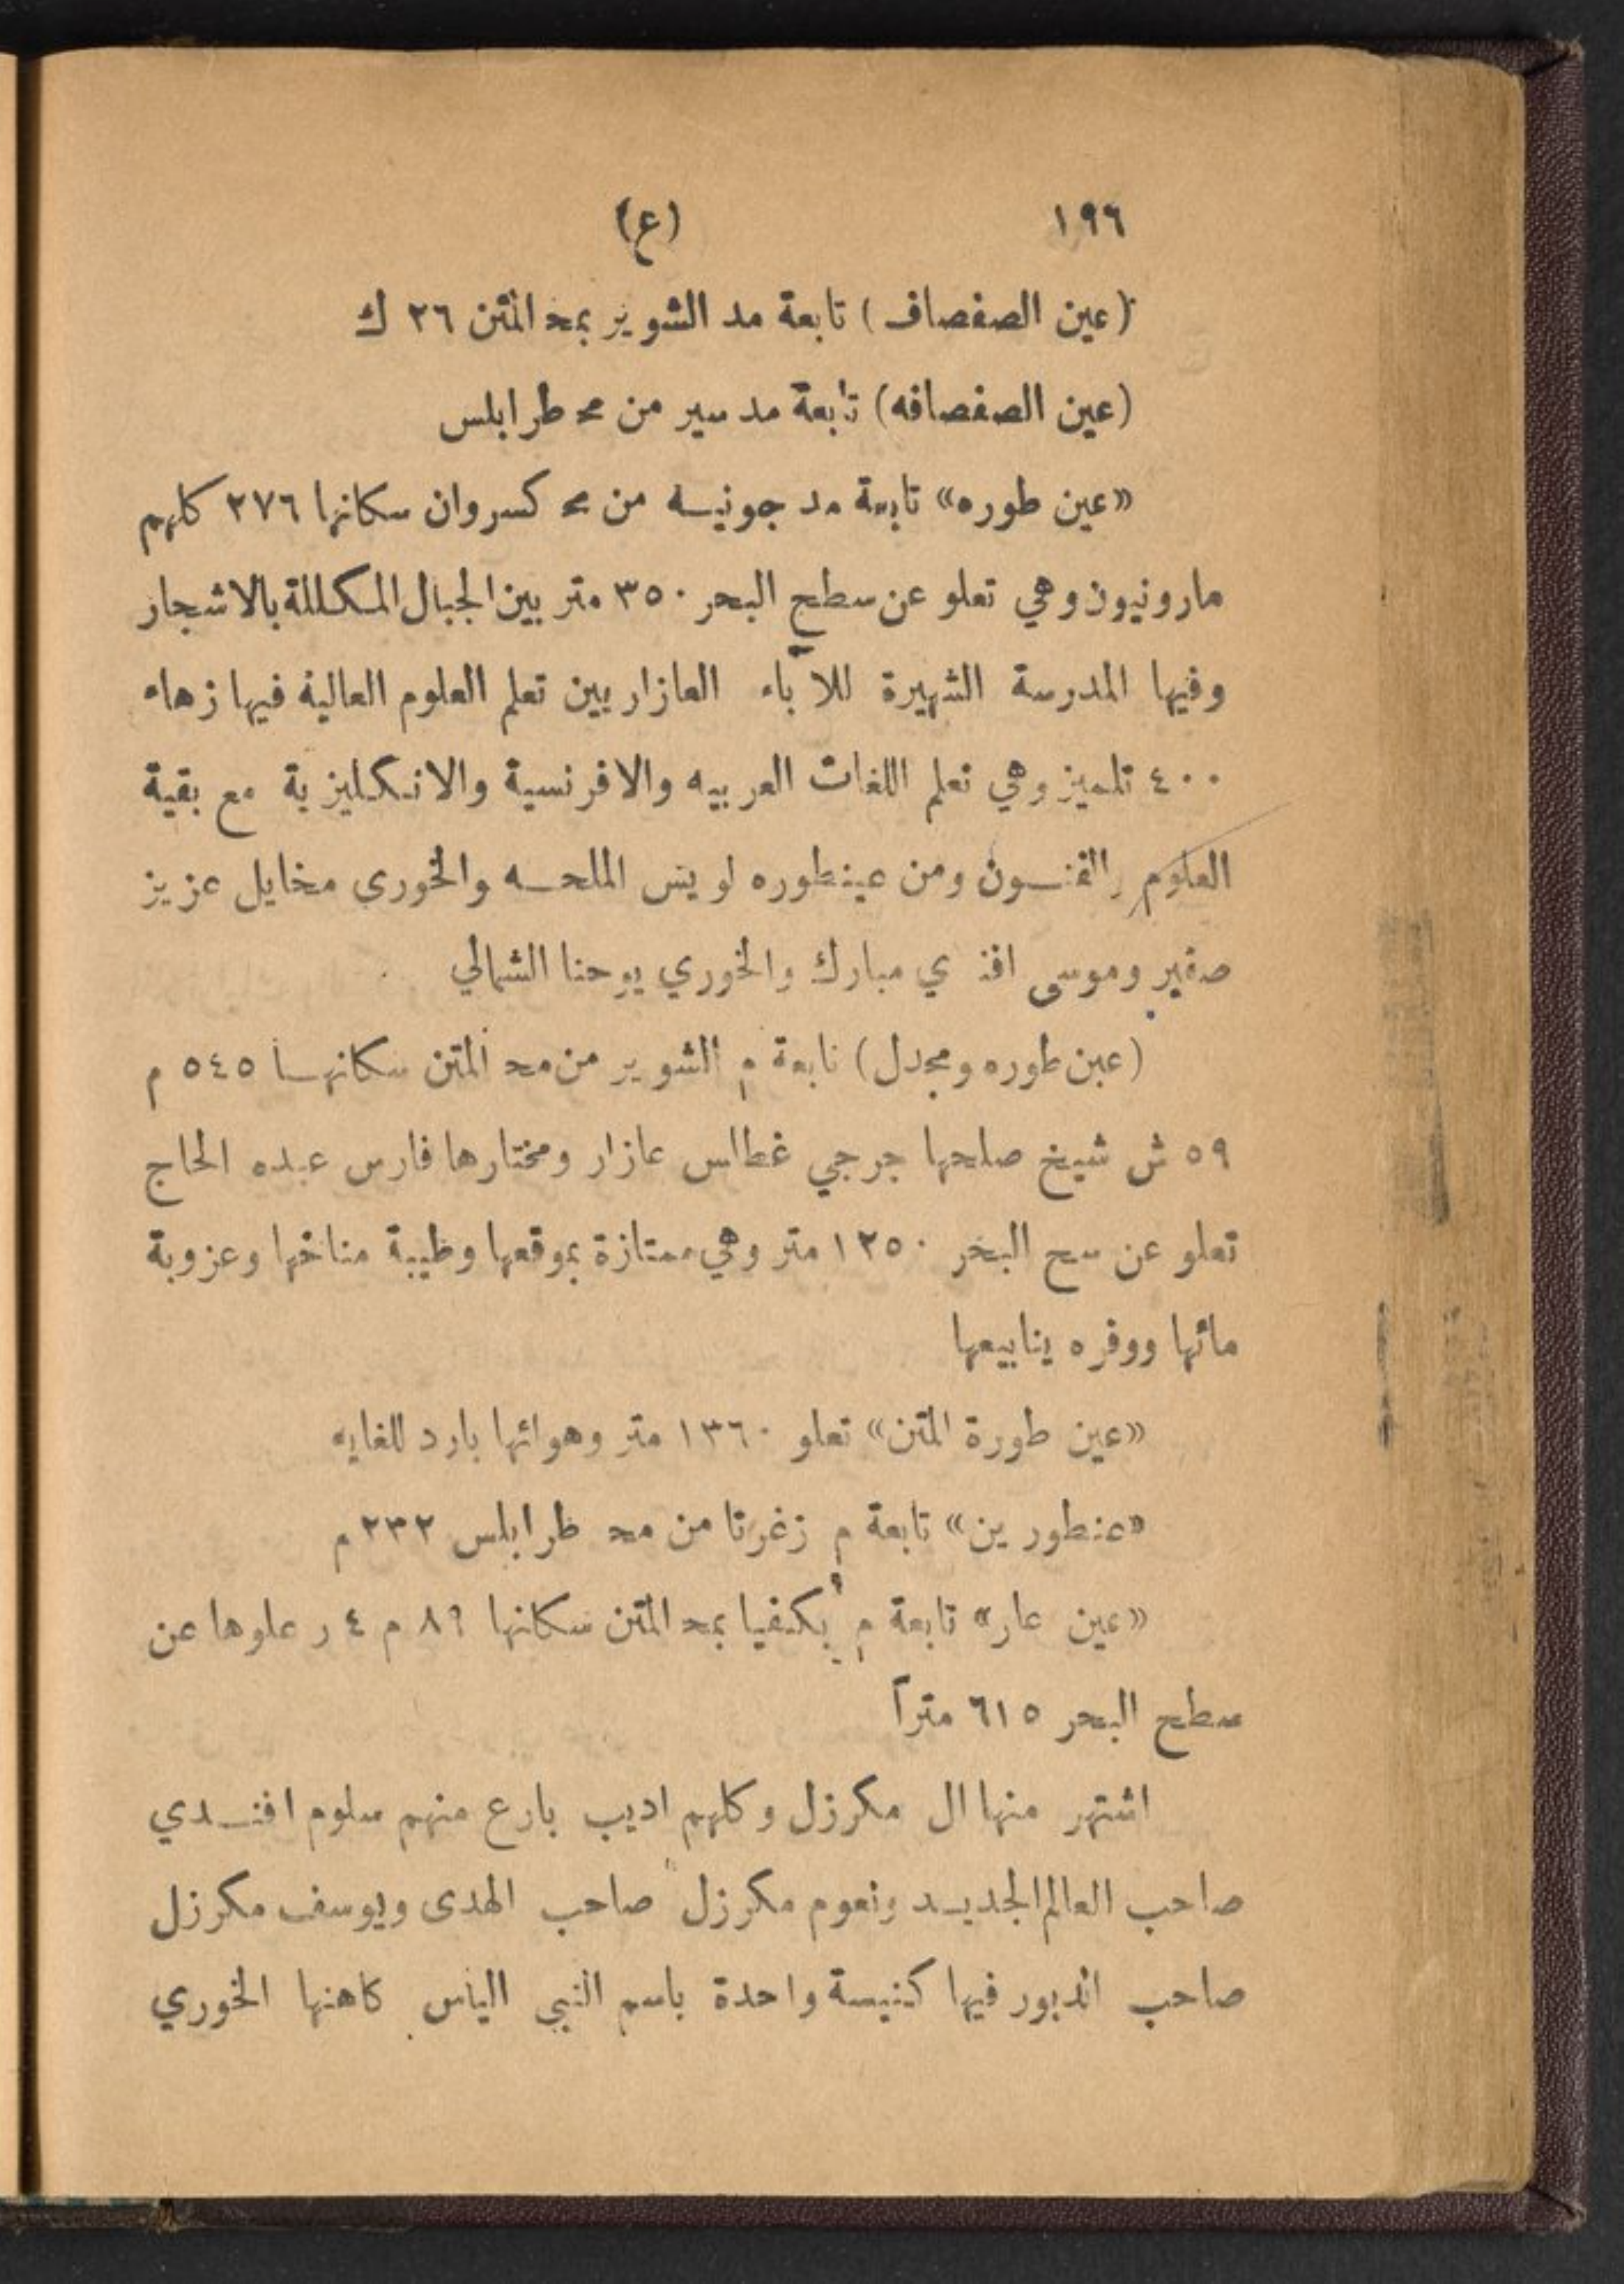 ١٩٦ (ع)
(عين الصفصاف) تابعة مد الشوير بمح المتن ٢٦ ك
(عين الصفصافه) تابعة مد سير من مح طرابلس
«عين طوره» تابعة مد جونيه من مح كسروان سكانها ٢٧٦ كلهم
مارونيون وهي تعلو عن سطح البحر ٣٥٠ متر بين الجبال المكللة بالاشجار
وفيها المدرسة الشهيرة للآباء العازاريين تعلم العلوم العالية فيها زهاء
٤٠٠ تلميز وهي تعلم اللغات العربيه والافرنسية والانكليزية مع بقية
العلوم والفنون ومن عينطوره لويس الملحه والخوري مخايل عزيز
صفير وموسى افندي مبارك والخوري يوحنا الشمالي
(عين طوره ومجدل) تابعة م الشوير من مح المتن سكانها ٥٤٥ م
٥٩ ش شيخ صلحها جرجي غطاس عازار ومختارها فارس عبده الحاج
تعلو عن سح البحر ١٢٥٠ متر وهي ممتازة بموقعها وطيبة مناخها وعزوبة
مائها ووفره ينابيعها
«عين طورة المتن» تعلو ١٣٦٠ متر وهوائها بارد للغايه
«عنطورين» تابعة م زغرتا من مح طرابلس ٢٣٢ م
«عين عار» تابعة م بكفيا بمح المتن سكانها ٨٩ م ٤ ر علوها عن
سطح البحر ٦١٥ متراً
اشتهر منها ال مكرزل وكلهم اديب بارع منهم سلوم افندي
صاحب العالم الجديد ونعوم مكرزل صاحب الهدى ويوسف مكرزل
صاحب الدبور فيها كنيسة واحدة باسم النبي الياس كاهنها الخوري